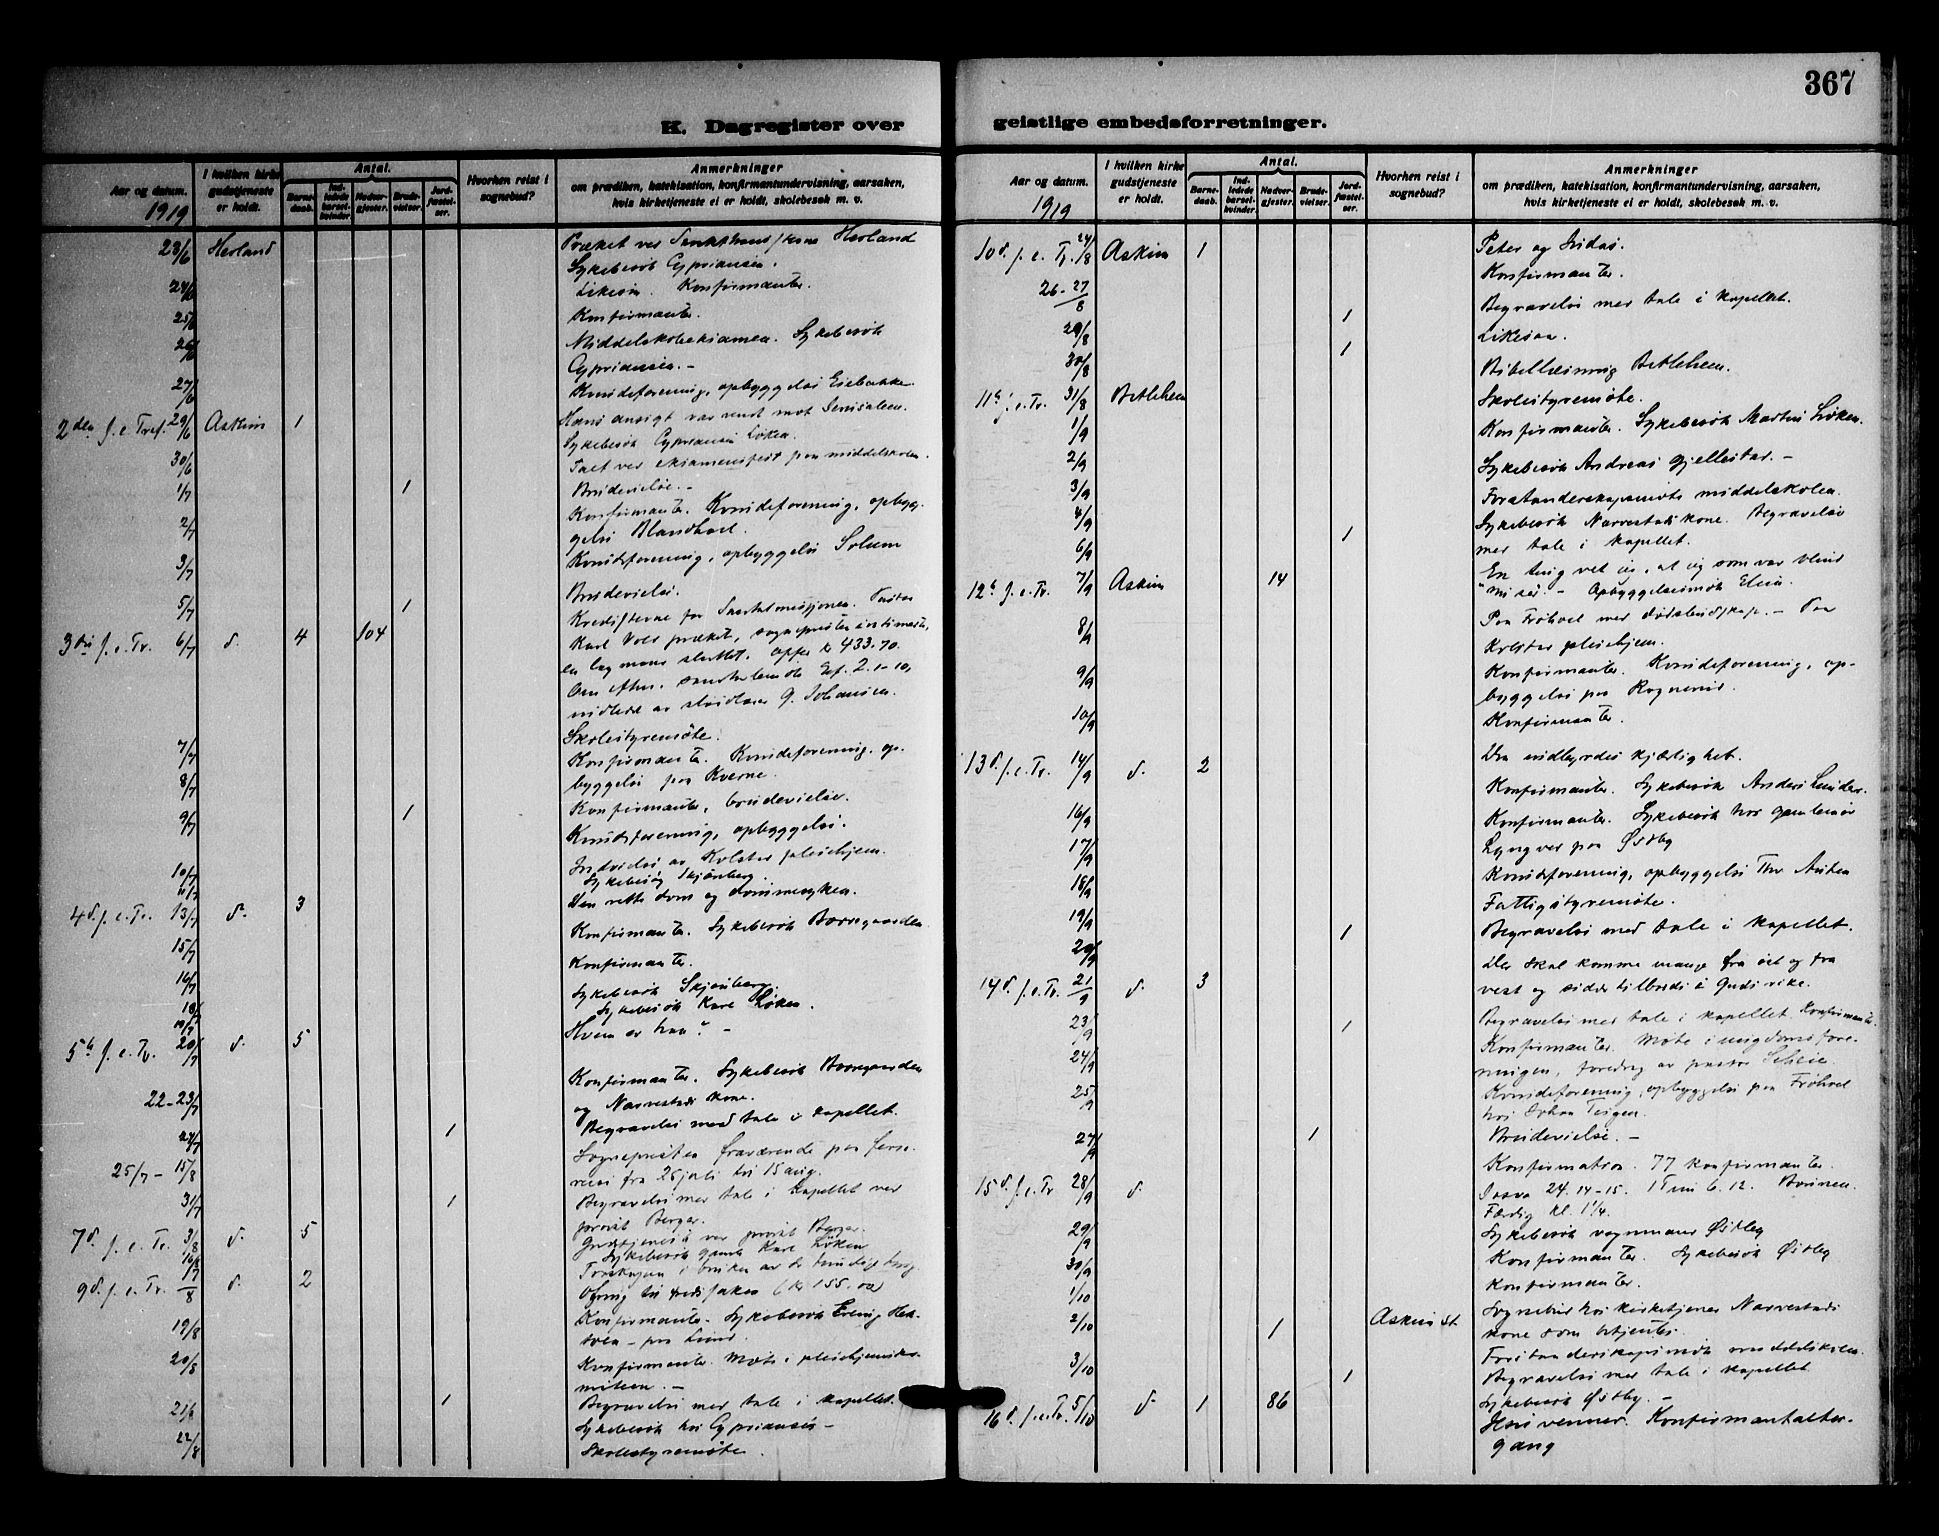 367
K. Dagregister over
geistlige embedsforretninger.
Aar og datum.
1919
I hvilken kirke gudstjeneste er holdt.
Antal.
Barnedaab.
Indledede barselkvinder.
Nadvergjester.
Brudevielser.
Jordfæstelser.
Hvorhen reist i sognebud?
Anmerkninger
om prædiken, katekisation, konfirmantundervisning, aarsaken,
hvis kirketjeneste ei er holdt, skolebesøk m. v.
23/6 Herland Præket ved Herland
Sykebesøk Cypriansen.
24/6 Likesaa. Konfirmanter.
25/6 Konfirmanter.
26/6 Middelskoleeksamen. Sykebesøk
Cypriansen. -
27/6 Kvindeforening, opbyggelse
2den s. e. Tref. 29/6 Askim 1 Hans ansigt var vendt mot Jerusalem.
Sykebesøk Cypriansen Løken.
30/6 Talt ved eksamensfest paa middelskolen.
1/7 1 Brudevielse. -
2/7 Konfirmanter. Kvindeforening, opbyg-
gelse
3/7 Kvindeforening, opbyggelse Solum
5/7 1 Brudevielse.
3die s. e. Tr. 6/7 d. 4 104 for Santalmisjonen. Pastor
Karl præket, sognepresten
en lægmann sluttet. Offer kr 433.70.
Om eftm. Ef. 2. 1-10,
G. Johansen.
7/7 Skolestyremøte.
8/7 Konfirmanter. Kvindeforening, op-
byggelse paa Kverne.
9/7 1 Konfirmanter, brudevielse.
Kvindeforening, opbyggelse.
10/7 Indvielse av Kolstad pleiehjem.
11/7 Sykebesøg Skjønberg.
4d. s. e. Tr. 13/7 d. 3 Den rette dom og dømmesyken.
15/7 Konfirmanter. Sykebesøk Borregaarden
16/7 Konfirmanter.
18/7 Sykebesøk Skjønberg.
19/7 Sykebesøk Karl Løken.
5te s. e. Tr. 20/7 d. 5 Hvem er han? -
22-23/7 Konfirmanter. Sykebesøk Borregaarden
og Narvestads kone.
24/7 1 Begravelse med tale i kapellet.
25/7 - 15/8 Sognepresten fraværende paa ferie-
reise fra 25 juli til 15 aug.
31/7 1 Begravelse med tale i kapellet ved
provst Berger.
7d. s. e. Tr. 3/8 d. 5 Gudstjeneste ved provst Berger.
16/8 Sykebesøk gamle Karl Løken
9d. s. e. Tr. 17/8 d. 2 Troskapen i bruken av
Ofring til (kr 155.00)
19/8 Konfirmanter. Sykebesøk
- paa Lund.
20/8 Konfirmanter. Møte i pleiehjemsko-
miteen. -
21/8 1 Begravelse med tale i kapellet.
Sykebesøk hos Cypriansen -
22/8 Skolestyremøte.
Aar og datum.
1919
I hvilken kirke gudstjeneste er holdt.
Antal.
Barnedaab.
Indledede barselkvinder.
Nadvergjester.
Brudevielser.
Jordfæstelser.
Hvorhen reist i sognebud?
Anmerkninger
om prædiken, katekisation, konfirmantundervisning, aarsaken,
hvis kirketjeneste ei er holdt, skolebesøk m. v.
10d. s. e. Tr. 24/8 Askim 1 Peter og Judas.
26-27/8 Konfirmanter.
29/8 1 Begravelse med tale i kapellet.
30/8 1 Likesaa.
11te s. e. Tr. 31/8 Betlehem Bibellæsning Betlehem.
1/9 Skolestyremøte.
2/9 Konfirmanter. Sykebesøk Martin Løken.
3/9 Sykebesøk Andreas Gjellestad. -
4/9 Forstanderskapsmøte middelskolen.
6/9 1 Sykebesøk Narvestads kone. Begravelse
med tale i kapellet.
12te s. e. Tr. 7/9 Askim 14 En ting vet jeg, at jeg som var blind
nu ser. - Opbyggelsesmøte
8/9 Paa Frøhvel med dødsbudskap. - Paa
Kolstad pleiehjem.
9/9 Konfirmanter. Kvindeforening, op-
byggelse paa
10/9 Konfirmanter.
13d. s. e. Tr. 14/9 d. 2 Den indbyrdes kjærlighet.
16/9 Konfirmanter. Sykebesøk Anders
17/9 Konfirmanter. Sykebesøk hos gamlemor
Lyngved paa Østby
18/9 Kvindeforening, opbyggelse Thv Auten
19/9 Fattigstyremøte.
20/9 1 Begravelse med tale i kapellet.
14d. s. e. Tr. 21/9 d. 3 Der skal komme mange fra øst og fra
vest og sidde tilbords i Guds rike.
23/9 1 Begravelse med tale i kapellet. Konfirmanter.
24/9 Konfirmanter. Møte i ungdomsfore-
ningen, foredrag av pastor
25/9 Kvindeforening, opbyggelse paa Frøhvel
hos Johan Teigen.
27/9 1 Brudevielse. -
15d. s. e. Tr. 28/9 d. Konfirmation. 77 konfirmanter.
Josva 24. 14-15. 1 Tim 6. 12. Bønnen.
Færdig kl. 1 1/4.
29/9 Sykebesøk Østby
30/9 Konfirmanter. Sykebesøk Østby
1/10 Konfirmanter.
2/10 1 Askim st. Sognebud hos kirketjener Narvestads
kone som betjentes.
3/10 Forstanderskapsmøte middelskolen.
1 Begravelse med tale i kapellet
Sykebesøk Østby. -
16d. s. e. Tr. 5/10 d. 1 86 Jesu venner. Konfirmantalter-
gang